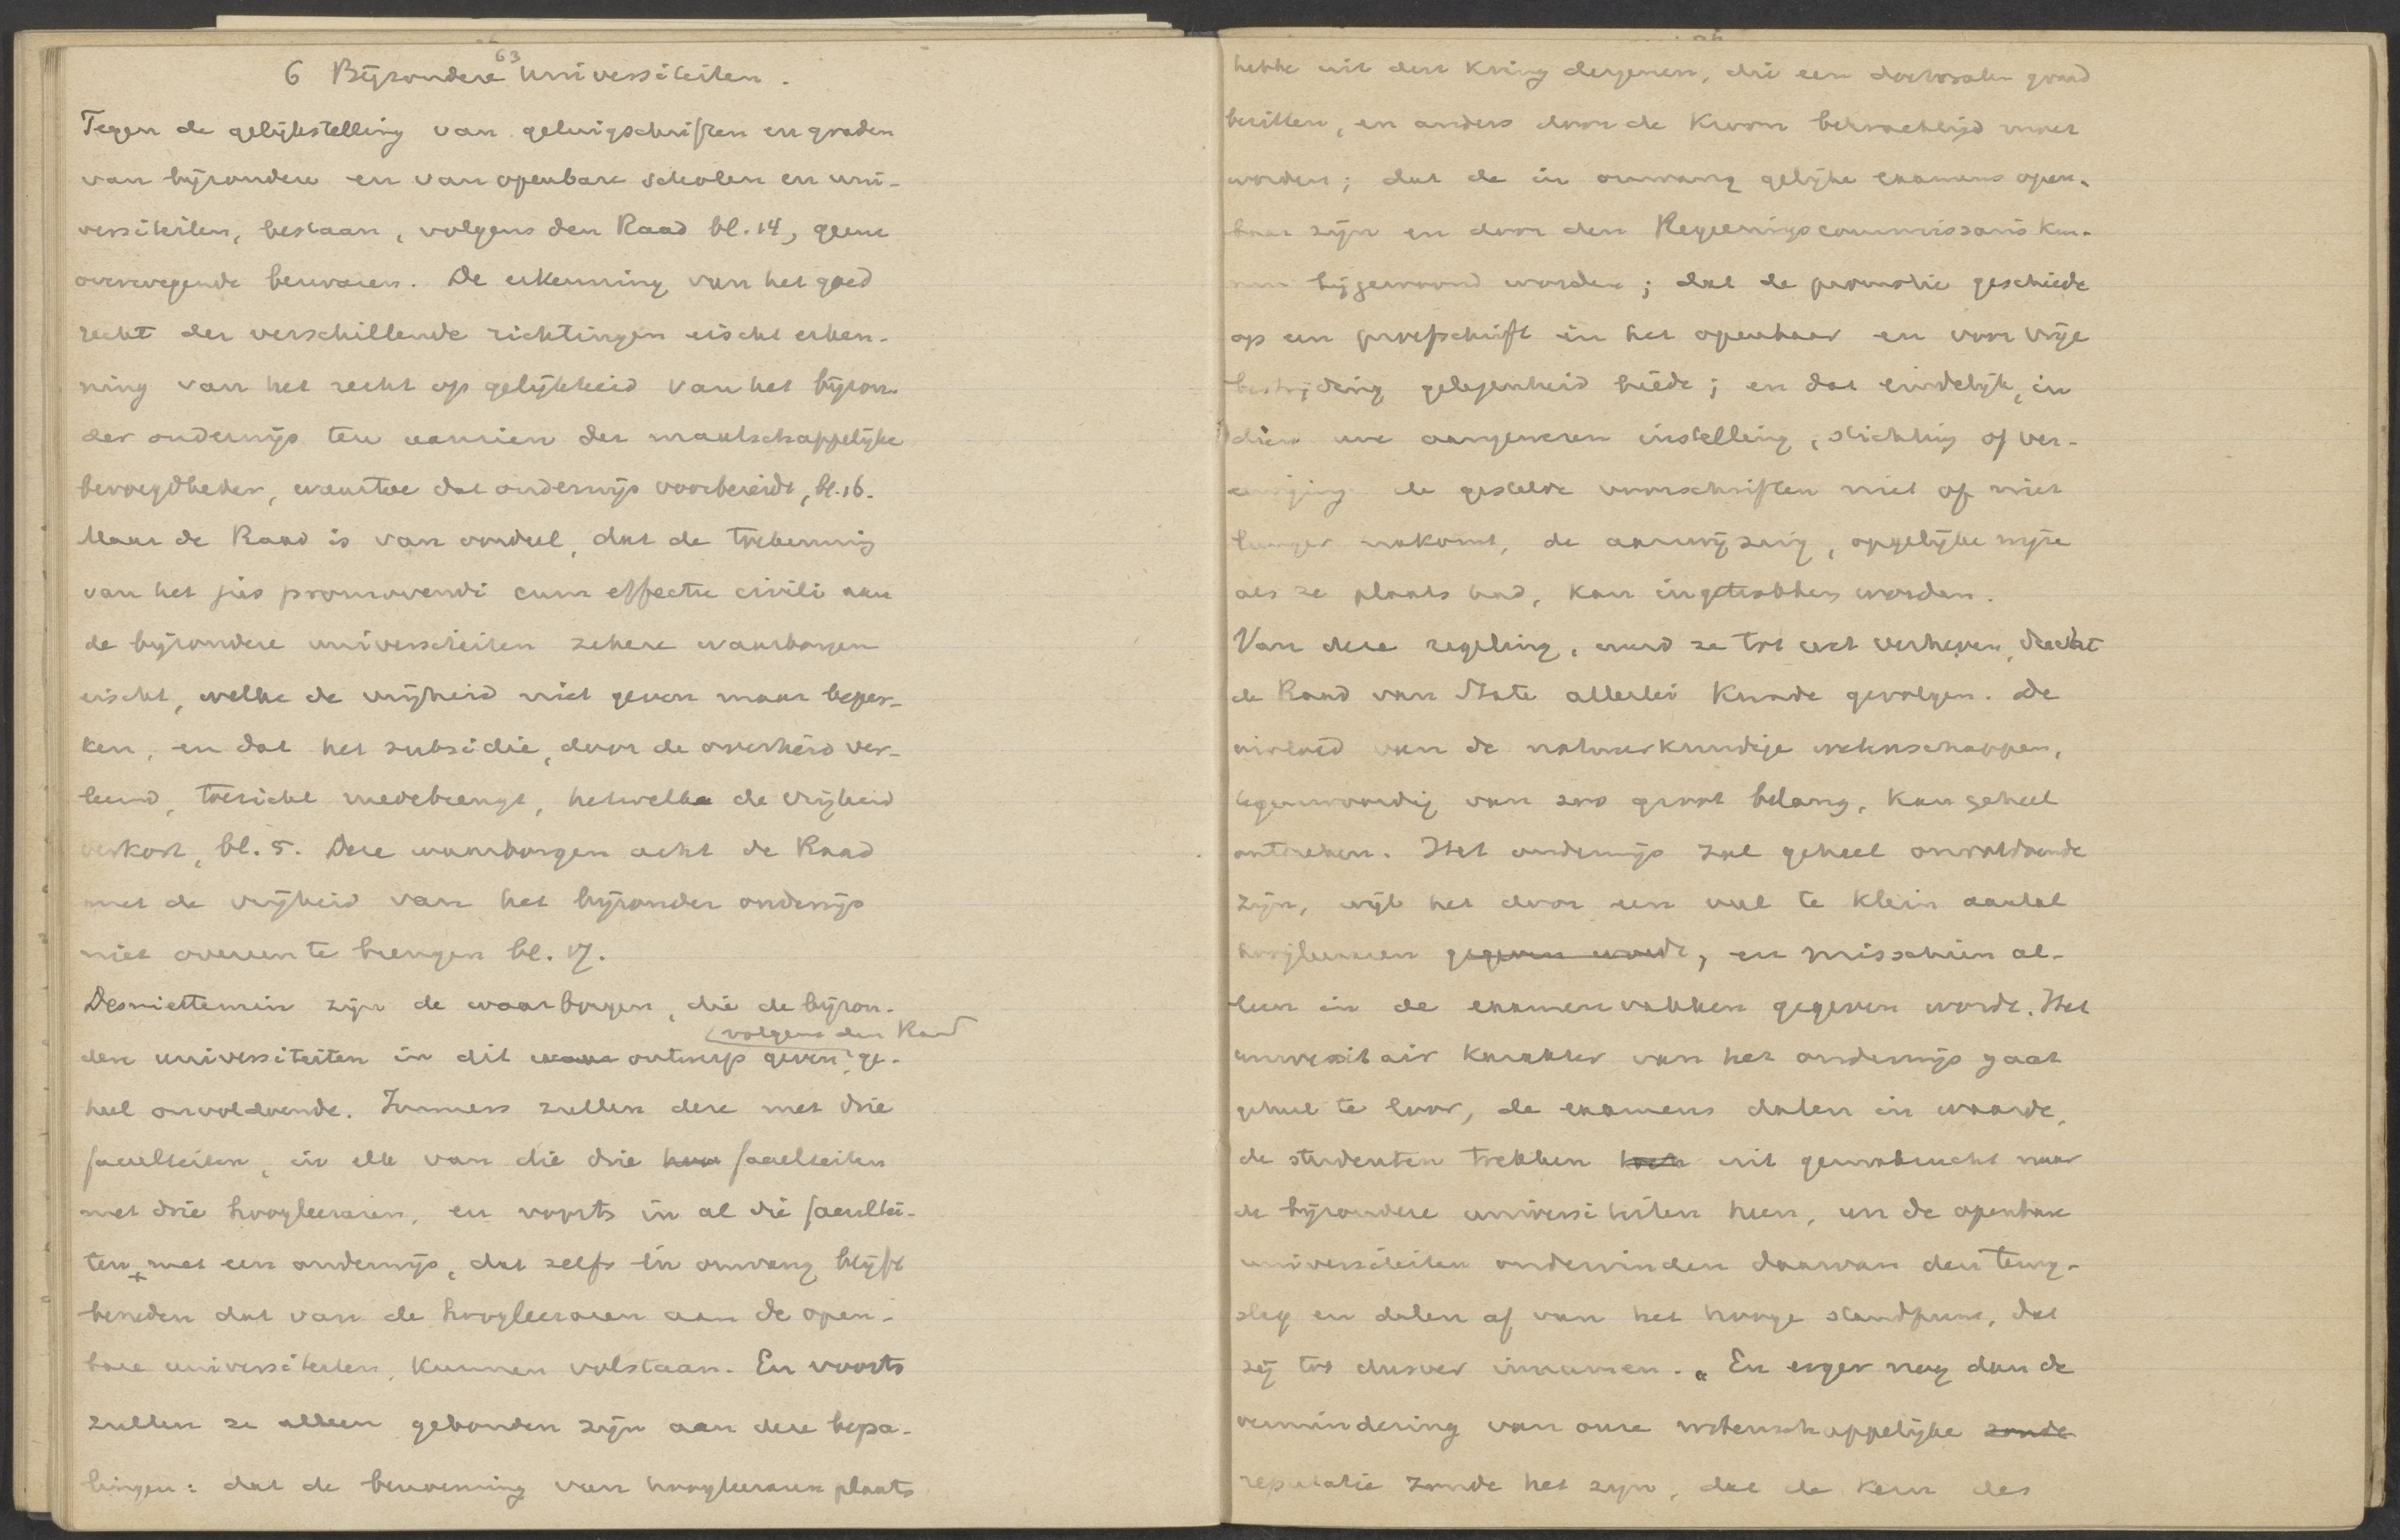 63
6 Bijzondere Universiteiten.
Tegen de gelijkstelling van getuigschriften en graden
van bijzondere en van openbare scholen en uni-
versiteiten, bestaan, volgens den Raad bl. 14, geene
overwegende bezwaren. De erkenning van het goed
recht der verschillende richtingen eischt erken-
ning van het recht op gelijkheid van het bijzon-
der onderwijs ten aanzien der maatschappelijke
bevoegdheden, waartoe dat onderwijs voorbereidt, bl. 16.
Maar de Raad is van oordeel, dat de toekenning
van het jus promovendi cum effectu civili aan
de bijzondere universiteiten zekere waarborgen
eischt, welke de vrijheid niet geven maar beper-
ken, en dat het subsidie, door de overheid ver-
leend, toezicht medebrengt, hetwelk de vrijheid
verkort, bl. 5. Deze waarborgen acht de Raad
met de vrijheid van het bijzonder onderwijs
niet overeen te brengen bl. 17.
Desniettemin zijn de waarborgen, die de bijzon-
volgens den Raad
dere universiteiten in dit ontwerp geven, ge-
heel onvoldoende. Immers zullen deze met drie
faculteiten, in elk van die drie faculteiten
met drie hoogleeraren, en voorts in al die facultei-
ten + met een onderwijs, dat zelfs in omvang blijft
beneden dat van de hoogleeraren aan de open-
bare universiteiten, kunnen volstaan. En voorts
zullen ze alleen gebonden zijn aan deze bepa-
lingen: dat de benoeming van hoogleeraren plaats
hebbe uit den kring dergenen, die een doctoralen graad
bezitten, en anders door de Kroon bekrachtigd moet
worden; dat de in omvang gelijke examens open-
baar zijn en door den Regeeringscommissaris kun-
nen bijgewoond worden; dat de promotie geschiede
op een proefschrift in het openbaar en voor vrije
bestrijding gelegenheid biede; en dat eindelijk, in
dien eene aangewezen instelling, stichting of ver-
eeniging de gestelde voorschriften niet of niet
langer nakomt, de aanwijzing, op gelijke wijze
als ze plaats had, kan ingetrokken worden.
Van deze regeling, werd ze tot wet verheven, ducht
de Raad van State allerlei kwade gevolgen. De
invloed van de natuurkundige wetenschappen,
tegenwoordig van zoo groot belang, kan geheel
ontbreken. Het onderwijs zal geheel onvoldoende
zijn, wijl het door een veel te klein aantal
hoogleeraren gegeven wordt, en misschien al-
leen in de examenvakken gegeven wordt. Het
universitair karakter van het onderwijs gaat
geheel te loor, de examens dalen in waarde,
de studenten trekken uit gemakzucht naar
de bijzondere universiteiten heen, en de openbare
universiteiten ondervinden daarvan den terug-
slag en dalen af van het hooge standpunt, dat
zij tot dusver innamen. „En erger nog dan de
vermindering van onze wetenschappelijke zoude
reputatie zoude het zijn, dat de kern des